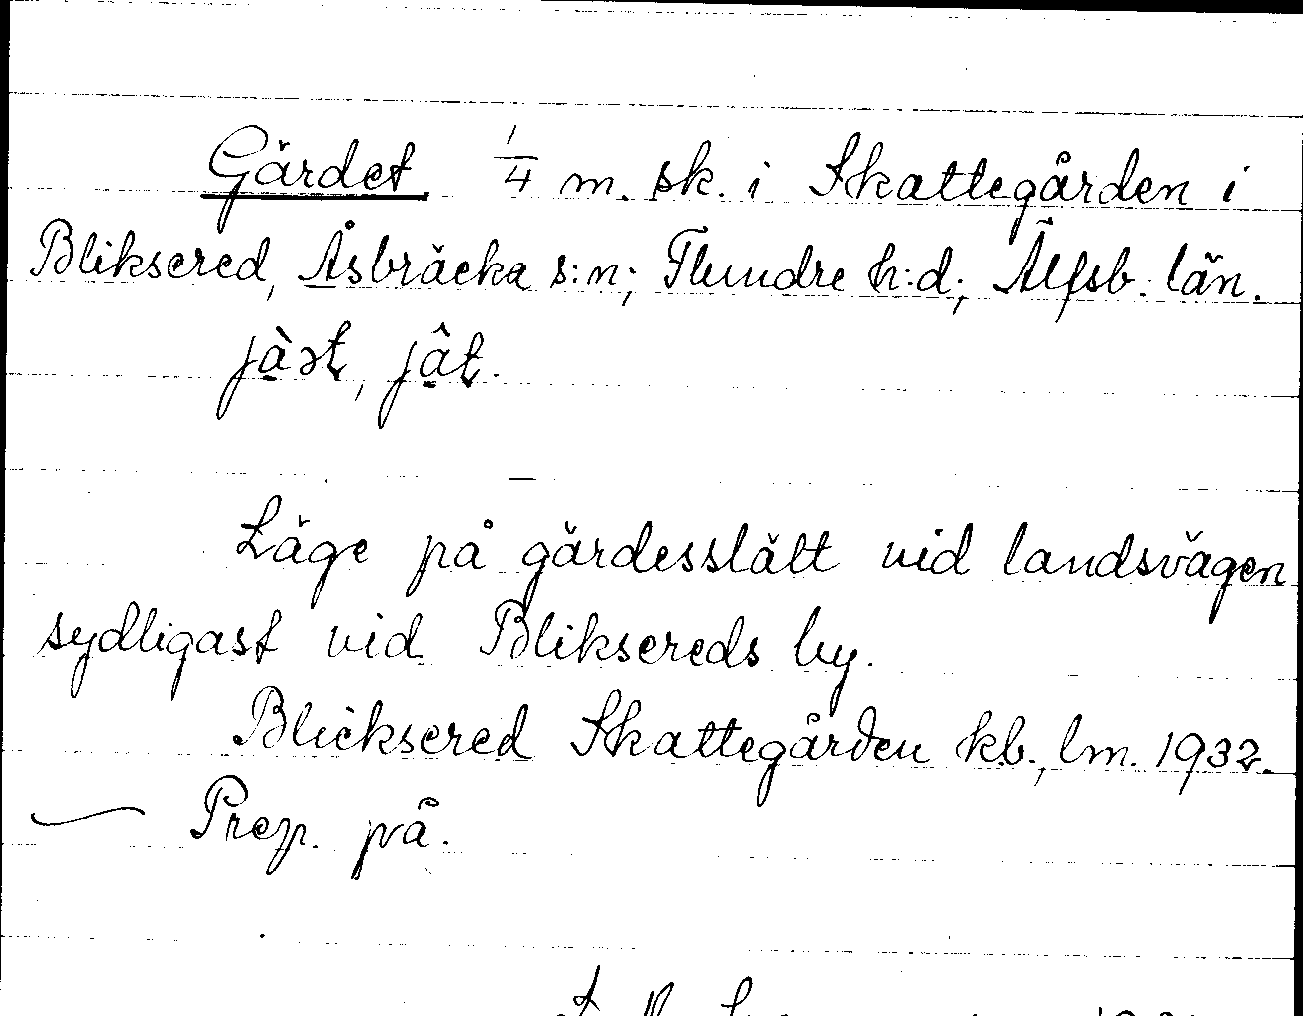 Gärdet. 1/4 m. sk. i Skattegården i
Bliksered, Åsbräcka s:n; Flundre h:d; Älfsb. län.
jàɜt, jât.
Läge på gärdesslätt vid landsvägen
sydligast vid Bliksereds by.
Blicksered Skattegården kb., lm. 1932.
Prep. på.